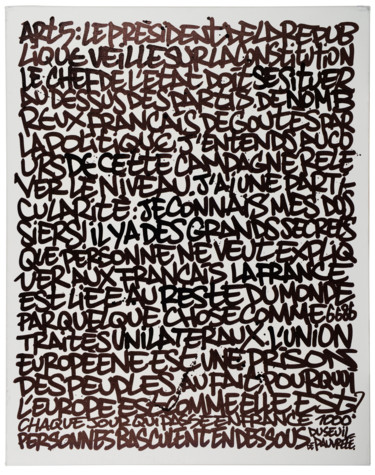 ART 5 : LE PRÉSIDENT DE LA RÉPUB
LIQUE VEILLE SUR LA CONSTITUTION
LE CHEF DE L'ÉTAT DOIT SE SITUER
AU DESSUS DES PARTIS. DE NOMB
REUX FRANÇAIS DÉGOUTÉS PAR
LA POLITIQUE. J'ENTENDS AU CO
URS DE CETTE CAMPAGNE RELE
VER LE NIVEAU. J'AI UNE PARTI
CULARITÉ : JE CONNAIS MES DOS
SIERS ! IL Y A DES GRANDS SECRETS
QUE PERSONNE NE VEUT EXPLIQ
UER AUX FRANÇAIS. LA FRANCE
EST LIÉE AU RESTE DU MONDE
PAR QUELQUE CHOSE COMME 6686
TRAITÉS UNILATERAUX. L'UNION
EUROPÉENNE EST UNE PRISON
DES PEUPLES. AU FAIT, POURQUOI
L'EUROPE EST COMME ELLE EST ?
CHAQUE JOUR QUI PASSE EN FRANCE 1000
PERSONNES BASCULENT EN DESSOUS DU SEUIL
DE PAUVRETÉ.